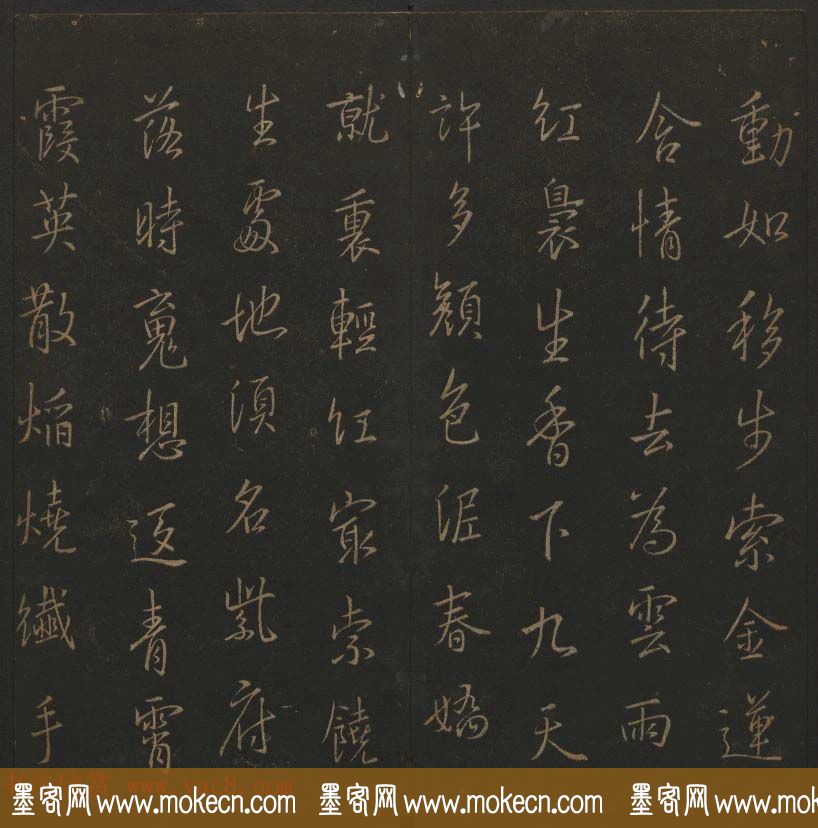 動如移步索金蓮
含情待去為雲雨
紅裊生香下九天
許多顏色泥春嬌
就裏輕紅寂索饒
生處地須名紫府
落時魂想返青霄
霞英散焰燒纖手
墨客网 www.mokecn.com 墨客网 www.mokecn.com 墨客网 www.mokecn.com